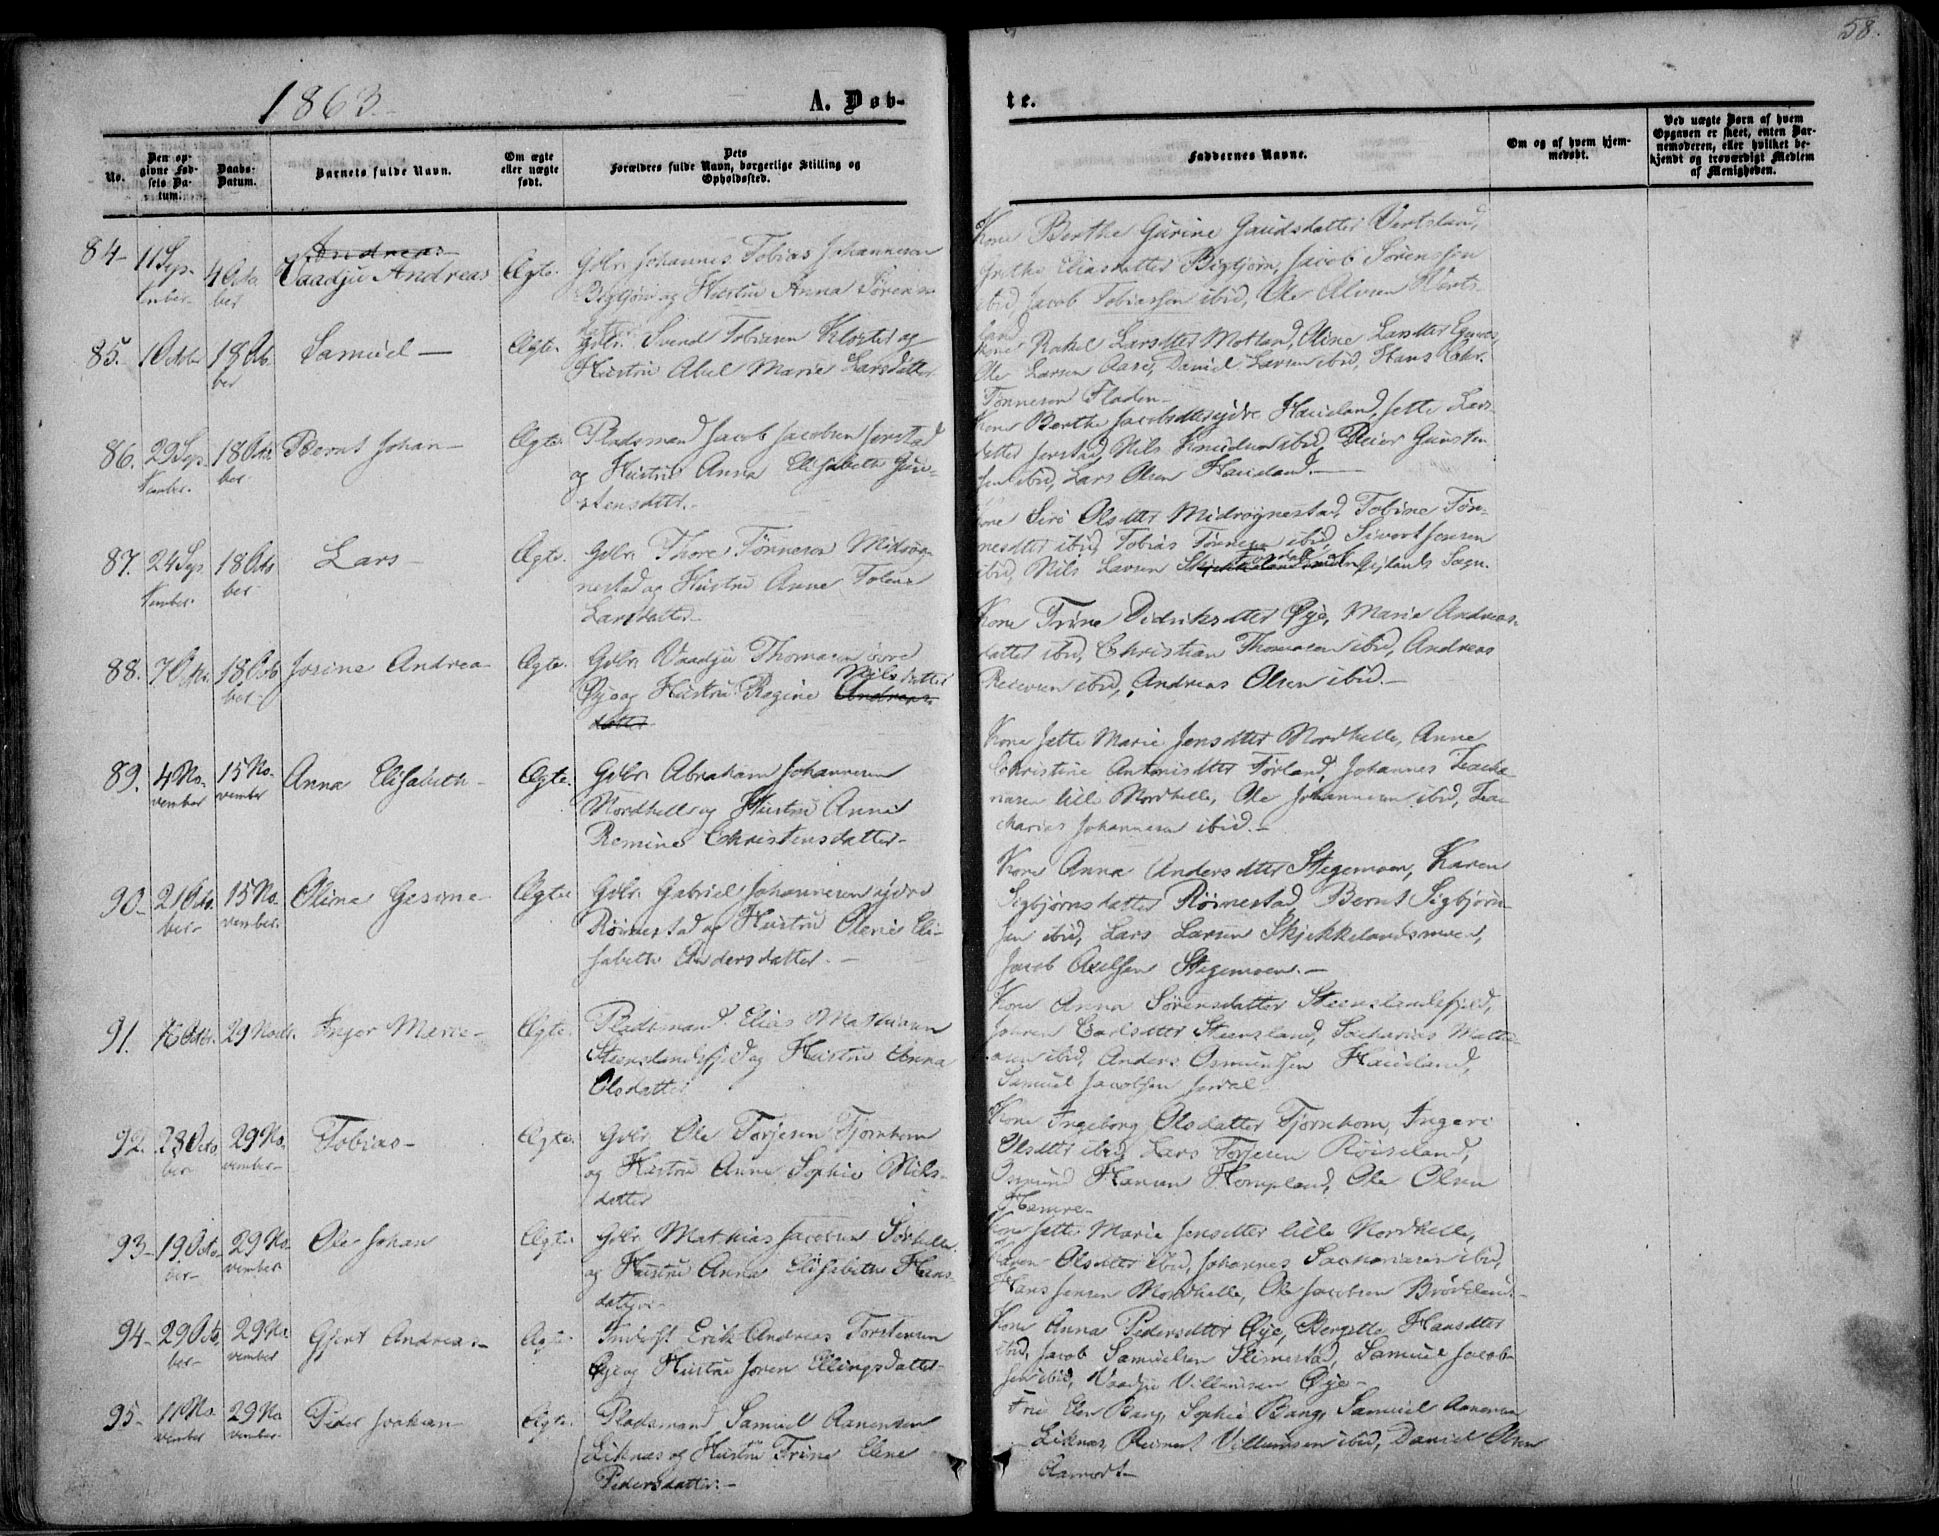 58.
1863.
A. Døb-
te.
No.
Den op-
givne Fød-
sels Da-
tum.
Daabs-
Datum.
Barnets fulde Navn.
Om ægte
eller uægte
født.
Dets
Forældres fulde Navn, borgerlige Stilling og
Opholdssted.
Faddernes Navne.
Om og af hvem hjem-
medøbt.
Ved uægte Børn af hvem
Opgaven er skeet, enten Bar-
nemoderen, eller hvilket be-
kjendt og troværdigt Medlem
af Menigheden.
84 11 Sep-
tember
4 Octo-
ber
Andreas
Vaadju Andreas
Ægte.
Gdbr. Johannes Tobias Johannesen
Bigtjøn og Hustru Anna Sørens-
datter
Kone Berthe Gurine Gaudsdatter Vertsland,
Grethe Eliasdatter Bigtjøn, Jacob Sørenssen
ibid, Jacob Tobiassen ibid, Ole Olsen Verts-
land
85. 1 Octbr
18 Octo-
ber
Samuel
Ægte.
Gdbr. Svend Tobiasen Kloster og
Hustru Abel Marie Larsdatter
Kone Rakel Larsdtter Motland, Oline Larsdtter Egenes,
Ole Larsen Aase, Daniel Larsen ibid, Hans
Tønnesen Fladen
86. 29 Sep-
tember.
18 Octo-
ber
Bernt Johan
Ægte.
Pladsmand Jacob Jacobsen Jerstad
og Hustru Anna Elisabeth Gun-
stensdatter.
Kone Berthe Jacobsdtter ydre Haueland, Jette Lars-
datter Jerstad, Nils Knudsen ibid, Reier Gunsten-
sen ibid, Lars Olsen Haueland.
87. 24 Sep-
tember.
18 Octo-
ber
Lars
Ægte.
Gdbr. Thore Tønnesen Midrøg-
nestad og Hustru Anne Tolene
Larsdatter
Kone Siri Olsdtter Midrøgnestad, Tobine Tøn-
nesdtter ibid, Tobias Tønnesen ibid, Sivert Jensen
ibid, Nils Larsen Gyslands Sogn.
88. 7 Octbr.
18 Octo-
ber
Josine Andrea
Ægte.
Gdbr. Vaadju Thomasen øvre
Øye og Hustru Regine Nilsdatter
Andreas-
datter
Kone Trine Didriksdatter Øye, Marie Andreas-
datter ibid, Christian Thomasen ibid, Andreas
Reiersen ibid, Andreas Olsen ibid.
89. 4 No-
vember
15 No-
vember
Anna Elisabeth
Ægte.
Gdbr. Abraham Johannesen
Nordhelle og Hustru Anne
Romine Christensdatter
Kone Jette Marie Jensdtter Nordhelle, Anne
Christine Antonisdtter Førland, Johannes Zacha-
riasen lille Nordhelle, Ole Johannesen ibid, Zac-
harias Johannesen ibid.
90. 21 Octo-
ber
15 No-
vember.
Olina Gesine
Ægte
Gdbr. Gabriel Johannesen ydre
Røinestad og Hustru Olene Eli-
sabeth Andersdatter.
Kone Anna Andersdtter Stegemoen, Karen
Sigbjørnsdatter Røinestad, Bernt Sigbjørn-
sen ibid, Lars Larsen Skjekkelandsmoen,
Jacob Axelsen Stegemoen.
91. Octbr.
29 Novbr.
Inger Marie
Ægte.
Pladsmand Elias Mathiasen
Steenslandsfjeld og Hustru Anna
Olsdatter
Kone Anna Sørensdatter Steenslandsfjeld,
Johren Carlsdtter Steensland, Zacharias Mathi-
asen ibid, Anders Osmundsen Haueland,
Samuel Jacobsen
92. 23 Octo-
ber
29 No-
vember
Tobias
Ægte.
Gdbr. Ole Torjesen Tjørnhom
og Hustru Anne Sophie Nils-
datter
Kone Ingeborg Olsdatter Tjørnhom, Ingeri
Olsdtter ibid, Lars Torjesen Røiseland,
Osmund Hansen Hompland, Ole Olsen
Hamre
93. 19 Octo-
ber
29 No-
vember
Ole Johan
Ægte.
Gdbr. Mathias Jacobsen Sørhelle
og Hustru Anna Elisabeth Hans-
datter
Kone Jette Marie Jensdtter lille Nordhelle,
Karen Olsdtter ibid, Johannes Zachariasen ibid,
Hans Jensen Nordhelle, Ole Jacobsen Brødeland
94. 29 Octo-
ber
29 No-
vember
Gjert Andreas
Ægte.
Inderst Erik Andreas Torstensen
Øye og Hustru Joren Ellingsdatter
Kone Anna Pedersdtter Øye, Bergitte Hansdtter
ibid, Jacob Samuelsen Slimestad, Samuel Jacob-
sen ibid, Vaadju Villumsen Øye
95. 11 No-
vember
29 No-
vember
Peder Joakim
Ægte.
Pladsmand Samuel Aanensen
Liknæs og Hustru Trine Elene
Pedersdatter.
Fru Elen Bang, Sophie Bang, Samuel Aanensen
Liknæs, Reinert Villumsen ibid, Daniel Olsen
Aamodt